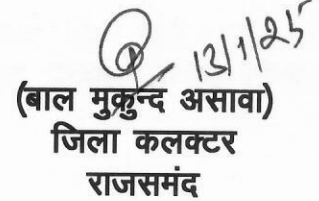 13/1/25
(बाल मुकुन्द असावा)
जिला कलक्टर
राजसमंद